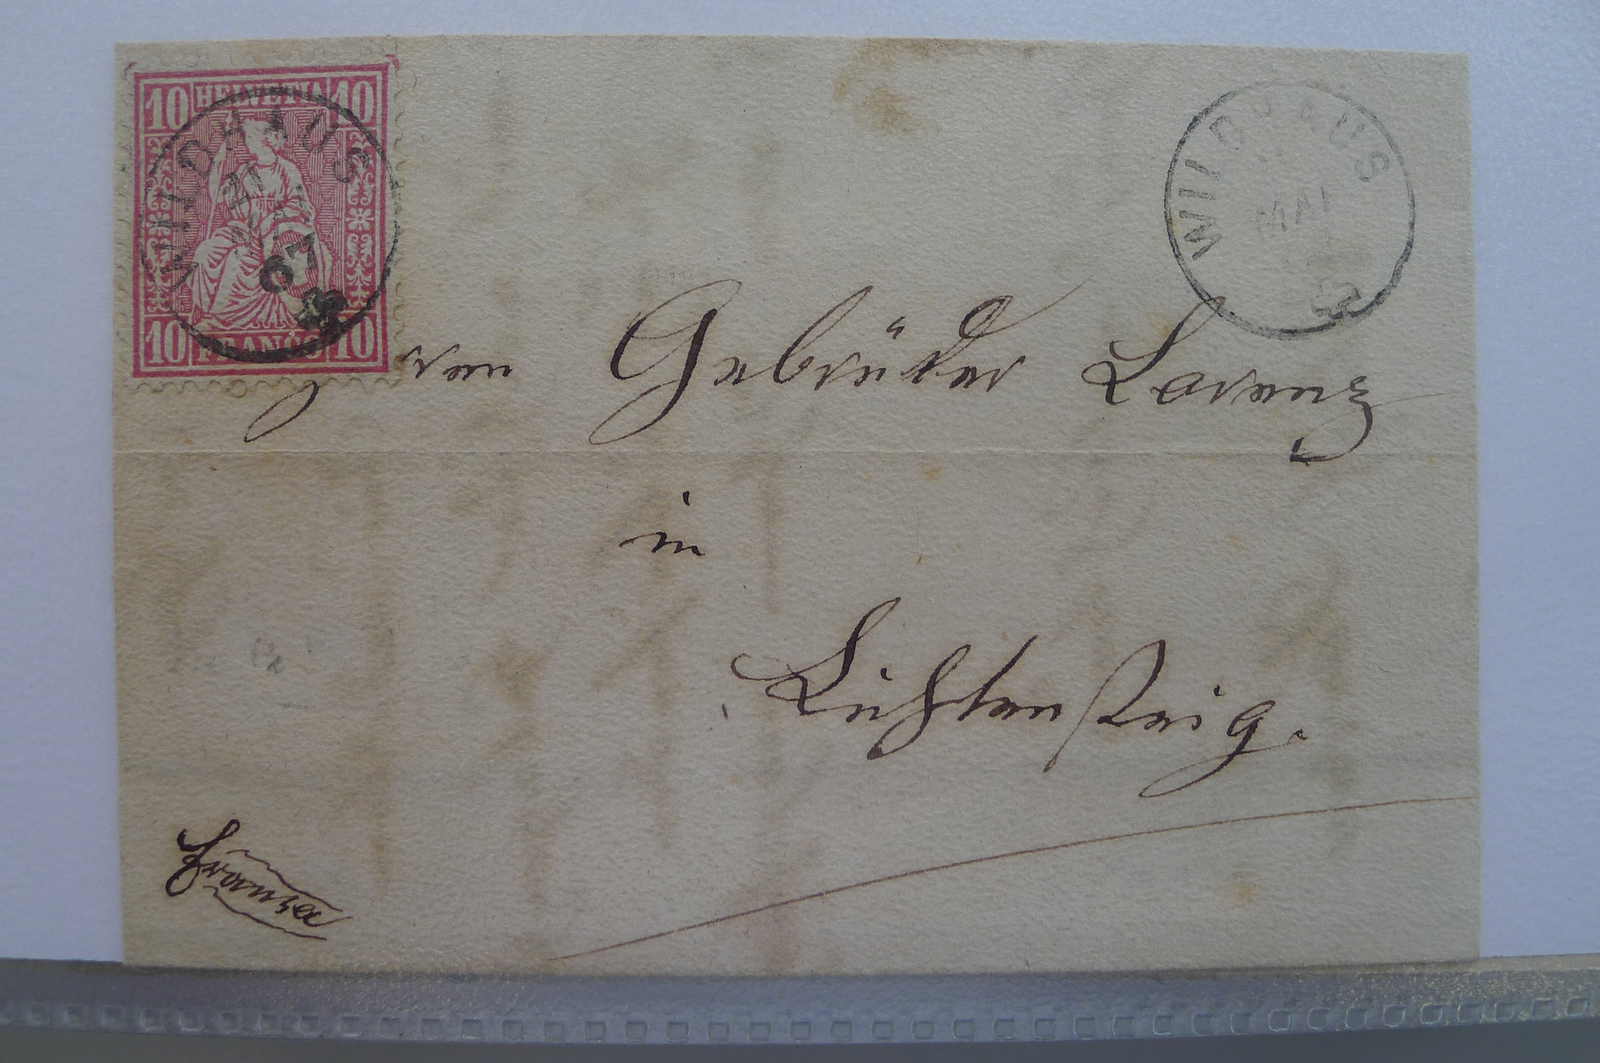 10 HELVETIA 10
WILDHAUS
21
67
10 FRANCO 10
WILDHAUS
MAI
Gebrüder Lorenz
in
Lichtensteig.
Franco